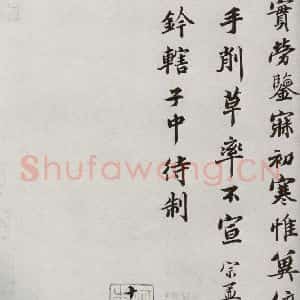 實勞鑒寐初寒惟冀倍
手削草率不宣 宗孟
鈐轄子中待制
Shufawang.CN
十